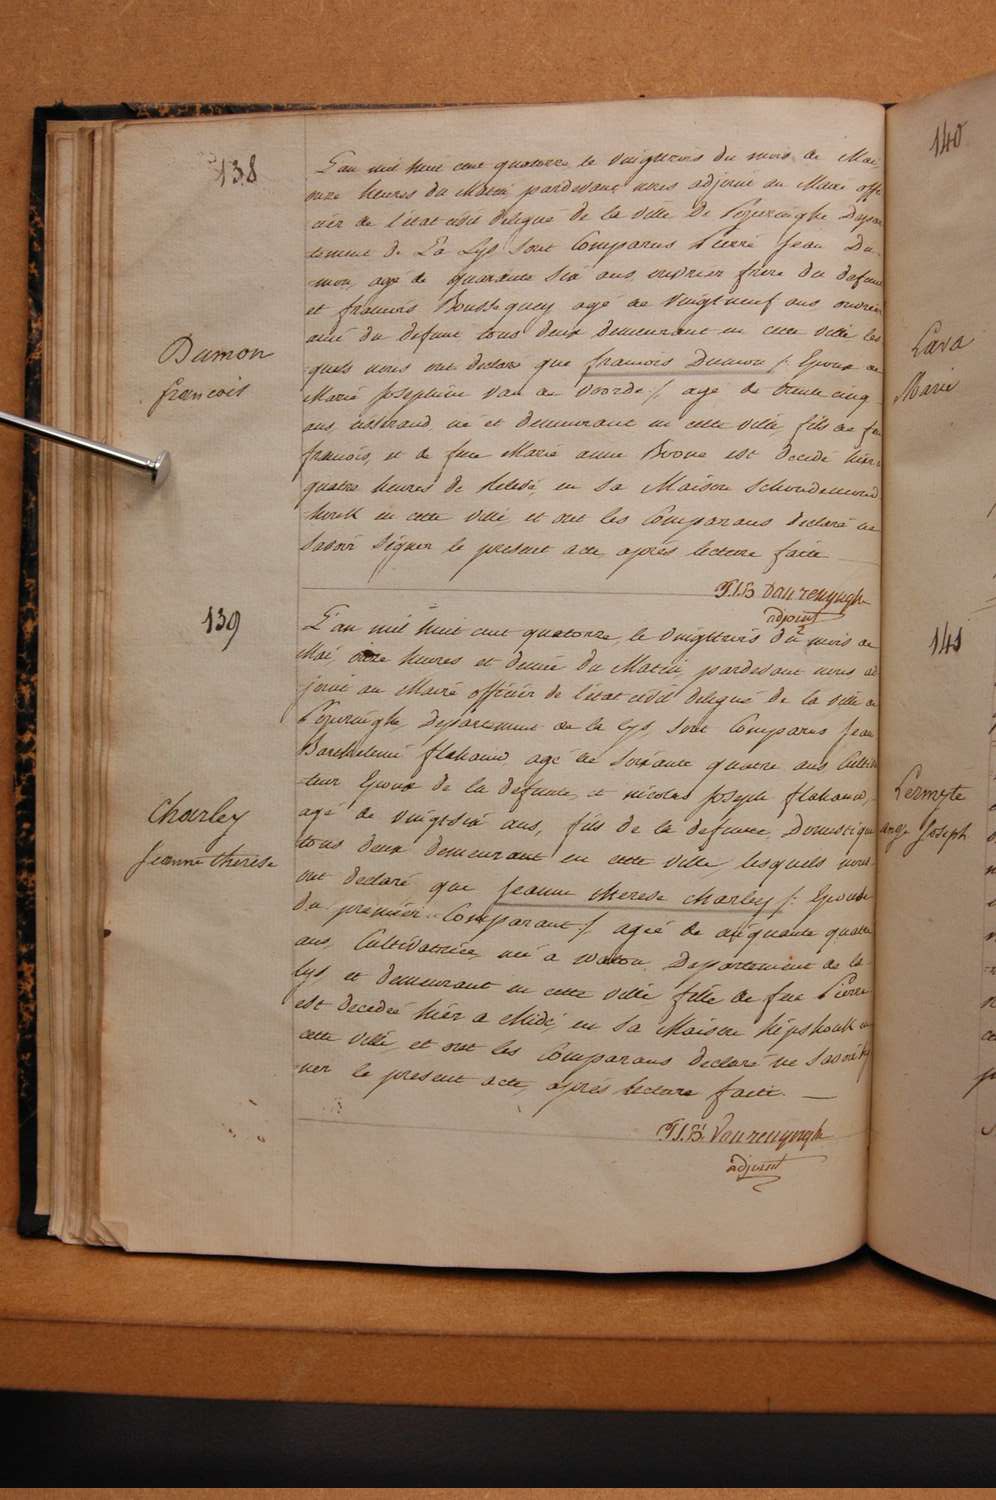 138
L'an mil huit cent quatorze le vingttrois du mois de Mai,
onze heures du Matin pardevant nous adjoint au Maire offi
cier de l'état civil delegué de la ville de Poperinghe Depar
tement de La Lys sont Comparus Pierre Jean Du-
mon, agé de quarante six ans ouvrier frere du defunt
et francois Boussequey agé de vingt neuf ans ouvrier
ami du defunt tous deux demeurant en cette ville les
quels nous ont declaré que francois Dumon /: Epoux de
Marie Josephine Van de Voorde :/ agé de trente cinq
ans, tisserand, né et demeurant en cette ville, fils de feu
francois, et de feue Marie anne Boone est decedé hier a
quatre heures de Relevé, en sa Maison
en cette ville et ont les Comparans declaré ne
savoir signer le present acte après lecture faite
P.J.B Vanrenynghe
adjoint
Dumon
francois
139
L'an mil huit cent quatorze, le vingttrois du mois de
Mai, onze heures et demie du Matin, pardevant nous ad
joint au Maire officier de l'état civil delegué de la ville de
Poperinghe, Departement de la Lys, sont Comparus Jean
Barthelemi flahauw agé de soixante quatre ans Cultiva
teur Epoux de la defunte, et nicolas Joseph flahauw,
agé de vingt-six ans, fils de la defunte, Domestique
tous deux demeurant en cette ville, lesquels nous
ont declaré que Jeanne therese Charley /: Epouse
du premier Comparant :/ agée de cinquante quatre
ans, Cultivatrice, née a Watou, Departement de la
Lys et demeurant en cette ville, fille de feu Pierre
est decedée hier a Midi, en sa Maison hipshouk en
cette ville, et ont les Comparans declaré ne savoir sig
ner le present acte, après lecture faite. —
P.J.B. Vanrenynghe
adjoint
Charley
Jeanne therese
140
Cava
Marie
141
Lermyte
ange Joseph